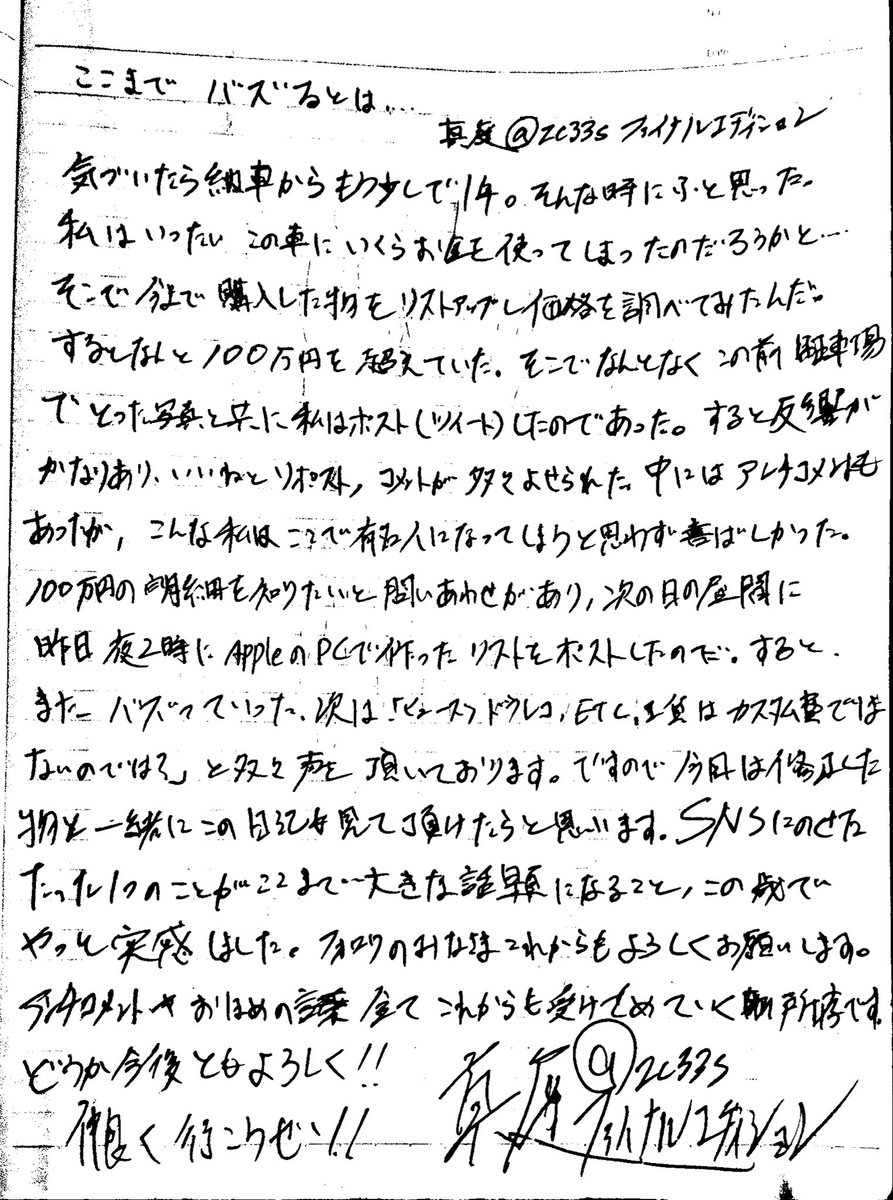 ここまで バズるとは....
真庭@ZC33S ファイナルエディション
気づいたら納車からもう少しで1年。そんな時にふと思った。
私はいったい この車に いくらお金を使ってしまったのだろうかと...
そこで今まで購入した物をリストアップし価格を調べてみたんだ。
するとなんと100万円を超えていた。そこでなんとなく この前 駐車場
で とった写真と共に私はポスト(ツイート)したのであった。すると反響が
かなりあり、いいねとリポスト, コメントが多々よせられた。中には アンチコメントも
あったが, こんな私は ここで有名人になってしまうと思わず喜ばしかった。
100万円の明細を知りたいと問いあわせがあり, 次の日の昼間に
昨日夜2時に AppleのPCで作ったリストをポストしたのだ。すると
また バズっていった。次は「ヒューズ ドラレコ, ETC, 工賃は カスタム費では
ないのでは?」と多々声を頂いております。ですので今日は修正した
物と一緒にこの日記を見て頂けたらと思います。SNSにのせた
たった1つのことがここまで大きな話題になること, この歳で
やっと実感しました。フォロワのみなさまこれからもよろしくお願いします。
アンチコメントや おほめの言葉 全て これからも受けとめていく所存です。
どうか今後ともよろしく!!
仲良く行こうぜい!!
真庭@ZC33S
ファイナルエディション